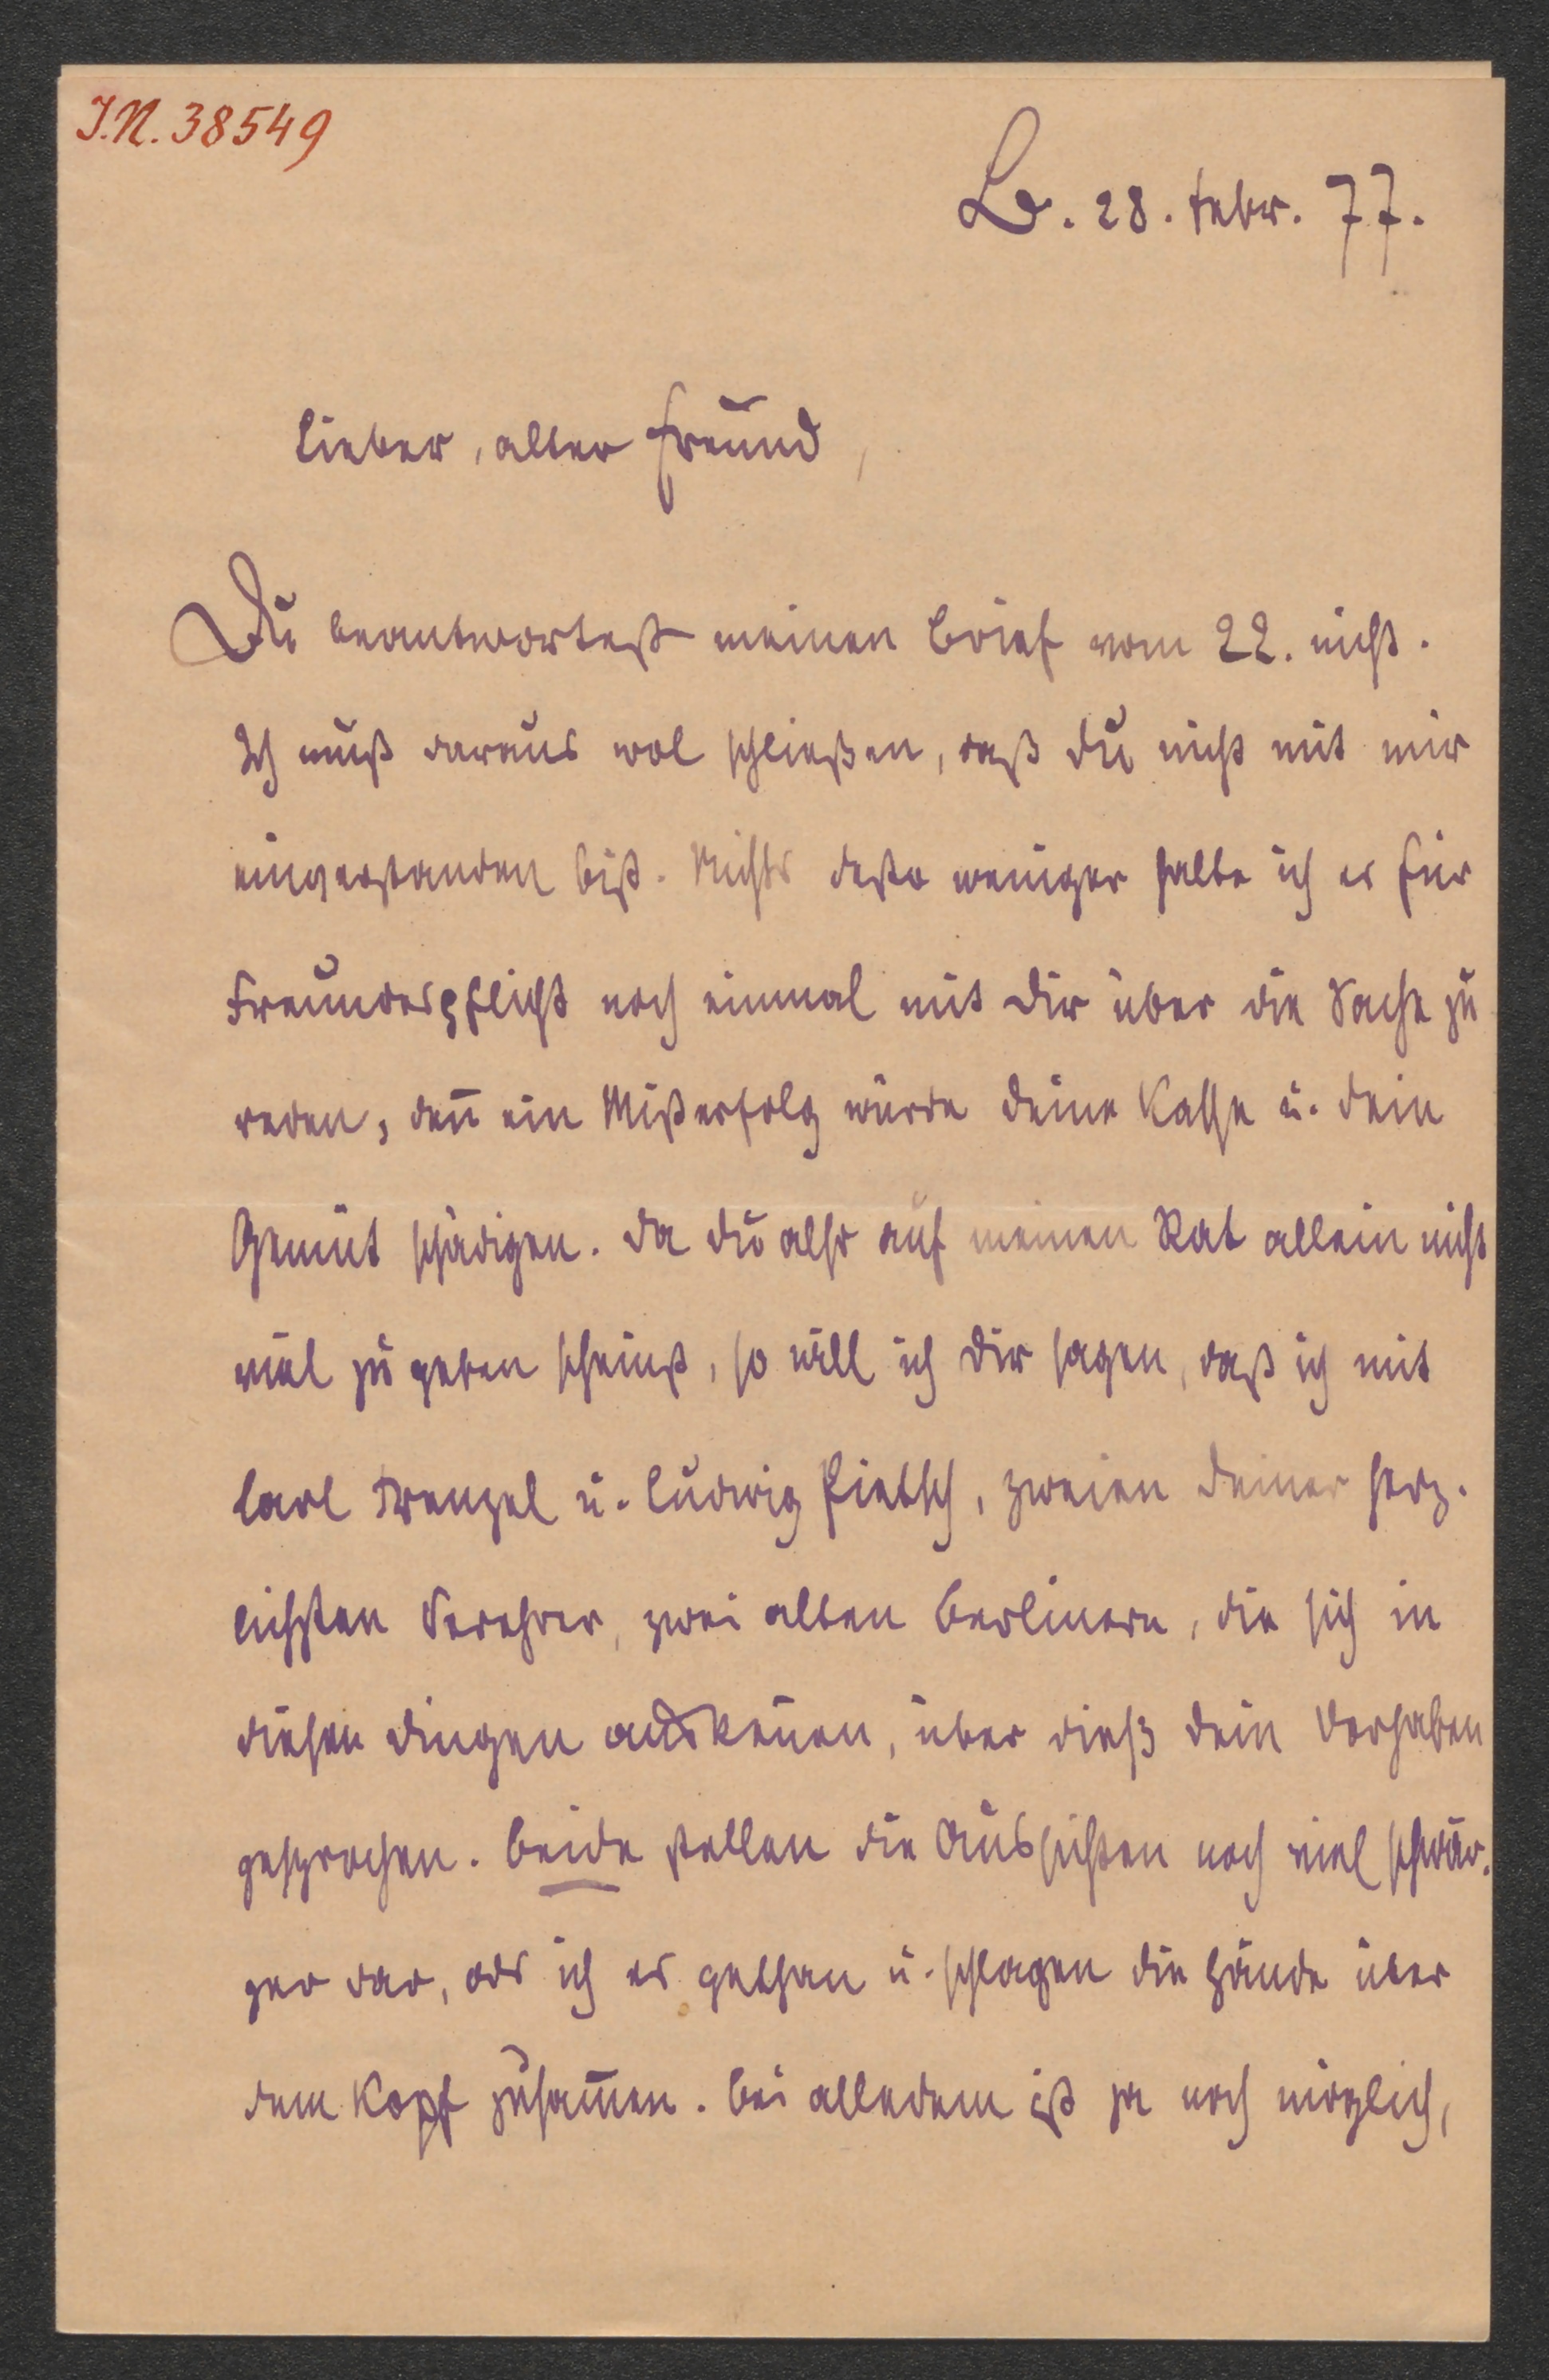 I.N. 38549
B. 28. Febr. 77.
Lieber, alter Freund,
Du beantwortest meinen Brief vom 22. nicht.
Ich muß daraus wol schließen, daß Du nicht mit mir
einverstanden bist. Nichts desto weniger halte ich es für
Freundespflicht noch einmal mit Dir über die Sache zu
reden, deñ ein Mißerfolg würde Deine Kasse u. Dein
Gemüt schädigen. Da Du also auf meinen Rat allein nicht
viel zu geben scheinst, so will ich Dir sagen, daß ich mit
Carl Frenzel u. Ludwig Pietsch, zweien Deiner herz-
lichsten Verehrer, zwei alten Berlinern, die sich in
diesen Dingen auskeñen, über dieß Dein Vorhaben
gesprochen. Beide stellen die Aussichten noch viel schwär-
zer dar, als ich es gethan u. schlagen die Hände über
dem Kopf zusam̄en. Bei alledem ist ja noch möglich,